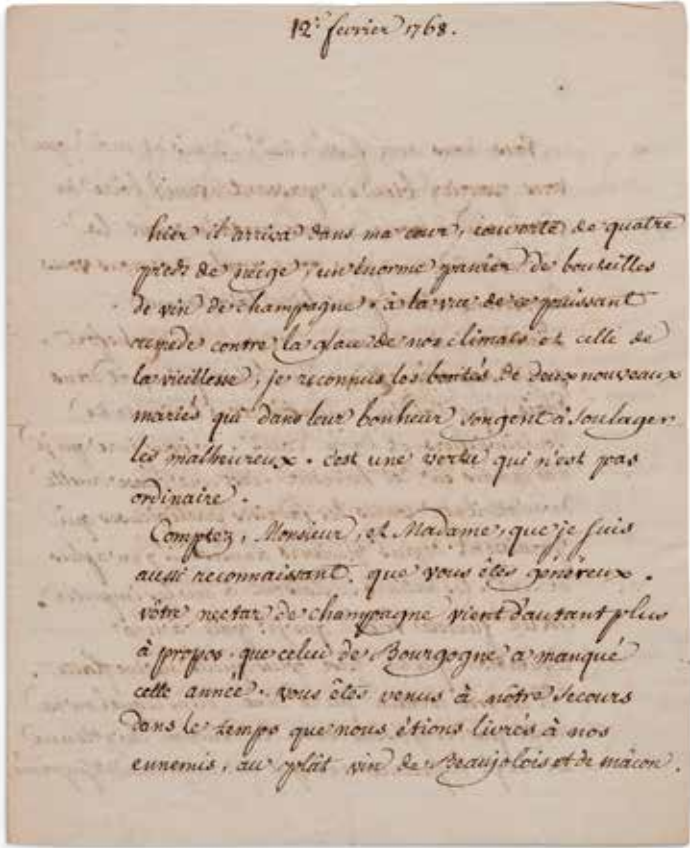 12e fevrier 1768.
hier il arriva dans ma cour, couverte de quatre
pieds de neige, un énorme panier de bouteilles
de vin de champagne. à la vue de ce puissant
remede contre la glace de nos climats et celle de
la vieillesse, je reconnus les bontés de deux nouveaux
mariés qui dans leur bonheur songent à soulager
les malheureux. c'est une vertu qui n'est pas
ordinaire.
Comptez, Monsieur, et Madame, que je suis
aussi reconnaissant que vous êtes généreux.
vôtre nectar de champagne vient d'autant plus
à propos que celui de Bourgogne a manqué
cette année. vous êtes venus à nôtre secours
dans le temps que nous étions livrés à nos
ennemis, au plat vin de Beaujolois et de mâcon.